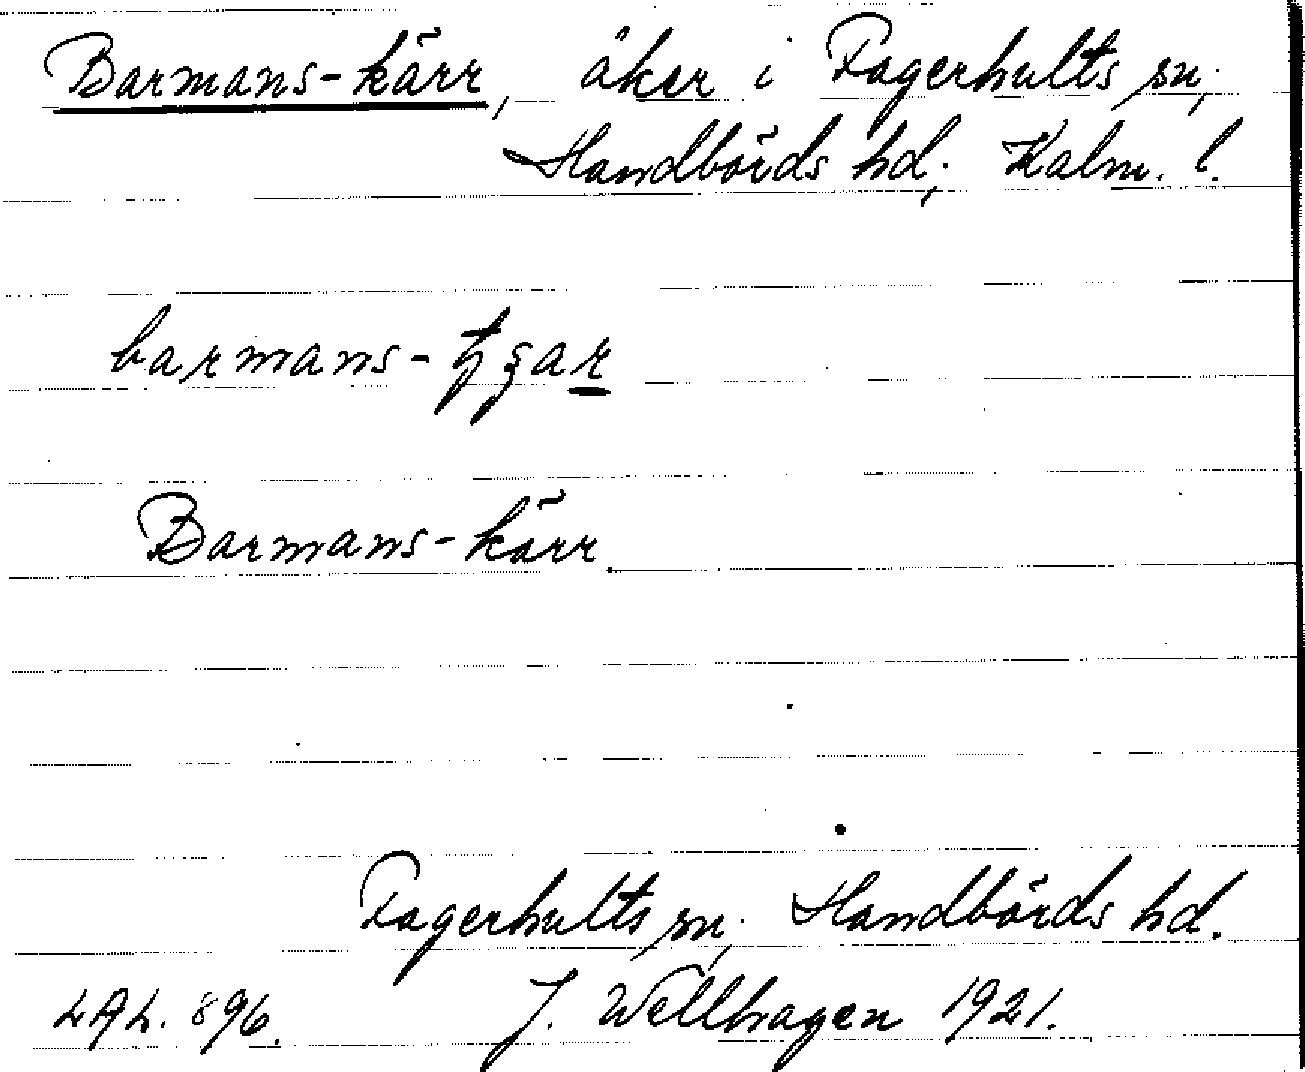 Barmans-kärr, åker i Fagerhults sn.,
Handbörds hd., Kalm. l.
barmans-
Barmans-kärr.
Fagerhults sn., Handbörds hd.
LAL. 896. J. Wellhagen 1921.